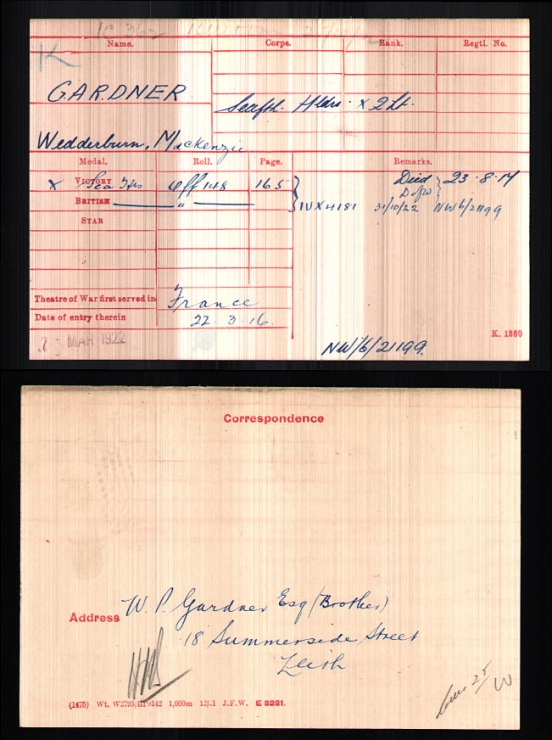 Name. Corps. Rank. Regtl. No.
K
GARDNER
Seafth. Hldrs. x 2 Lt.
Wedderburn, Mackenzie
Medal. Roll. Page. Remarks.
x VICTORY Sea Hrs Off 148 165 Died 23.8.17
BRITISH " IVX4181 31/10/22 NW6/21199
STAR
Theatre of War first served in France
Date of entry therein 22.3.16.
7 - MAR 1922
K. 1380
NW/6/21199.
Correspondence
Address W. P. Gardner Esq (Brother)
18 Summerside Street
Leith
1,000m J.F.W. E 9281.